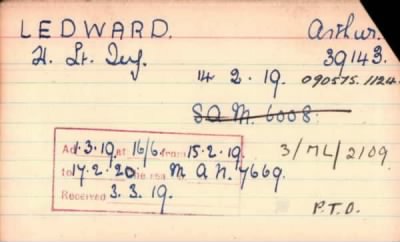 LEDWARD. Arthur.
H. Lt. Inf. 39143.
14 2. 19. 090575.1124.
S.Q.M. 6008.
Ad 1.3.19. at 16/6 from 15.2.19.
3/ML/2109
to 17.2.20 M A N. 7669.
Received 3.3.19.
P.T.O.